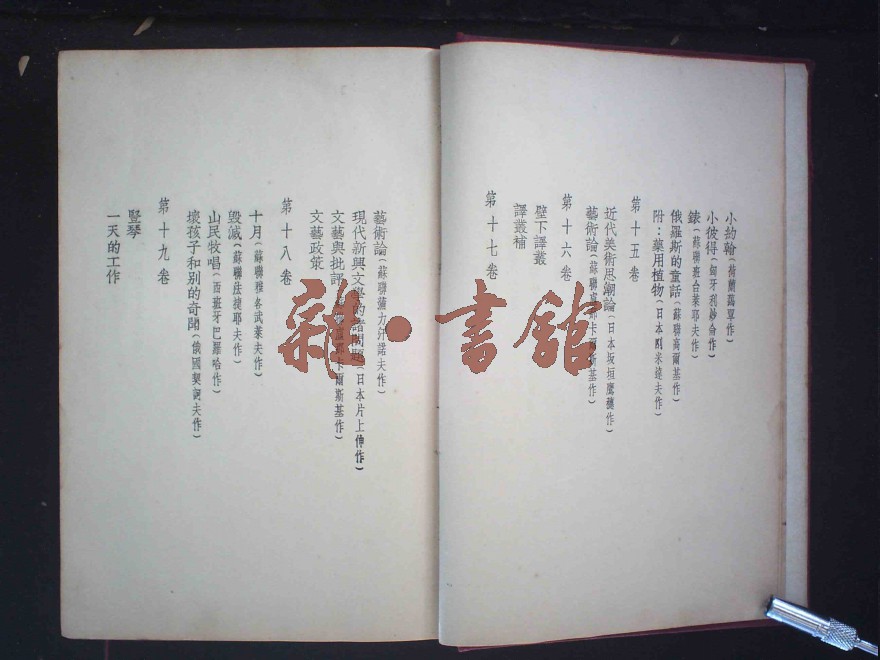 小約翰(荷蘭藹覃作)
小彼得(匈牙利妙倫作)
錶(蘇聯班台萊耶夫作)
俄羅斯的童話(蘇聯高爾基作)
附:藥用植物(日本刈米達夫作)
第十五卷
近代美術思潮論(日本坂垣鷹穗作)
藝術論(蘇聯盧那卡爾斯基作)
第十六卷
壁下譯叢
譯叢補
第十七卷
藝術論(蘇聯蒲力汗諾夫作)
現代新興文學的諸問題(日本片上伸作)
文藝與批評(蘇聯盧那卡爾斯基作)
文藝政策
第十八卷
十月(蘇聯雅各武萊夫作)
毀滅(蘇聯法捷耶夫作)
山民牧唱(西班牙巴羅哈作)
壞孩子和別的奇聞(俄國契訶夫作)
第十九卷
豎琴
一天的工作
雜·書館